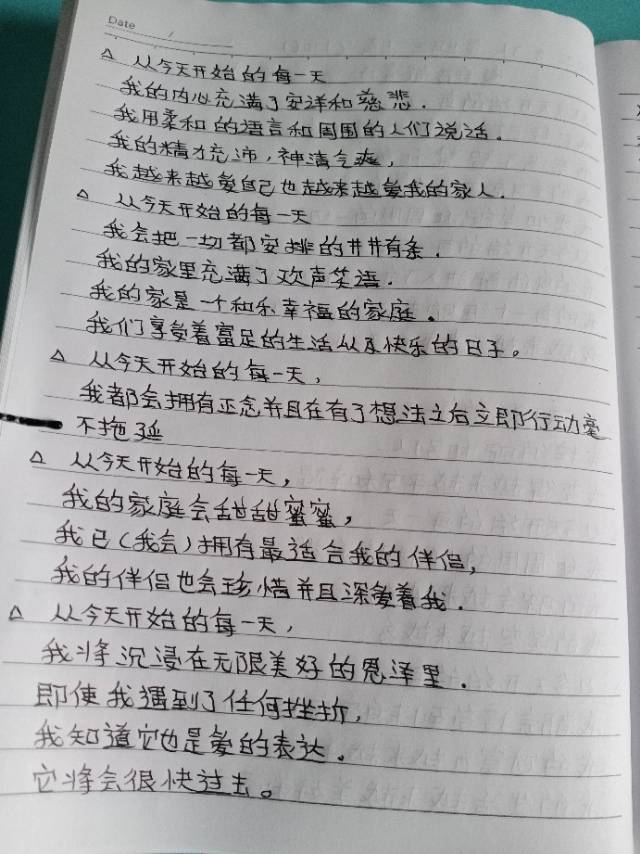 Date
△ 从今天开始的每一天
我的内心充满了安祥和慈悲.
我用柔和的语言和周围的人们说话.
我的精力充沛,神清气爽,
我越来越爱自己也越来越爱我的家人.
△ 从今天开始的每一天
我会把一切都安排的井井有条.
我的家里充满了欢声笑语.
我的家是一个和乐幸福的家庭。
我们享受着富足的生活以及快乐的日子。
△ 从今天开始的每一天,
我都会拥有正念并且在有了想法之后立即行动毫
不拖延
△ 从今天开始的每一天,
我的家庭会甜甜蜜蜜,
我已(我会)拥有最适合我的伴侣,
我的伴侣也会珍惜并且深爱着我.
△ 从今天开始的每一天,
我将沉浸在无限美好的恩泽里.
即使我遇到了任何挫折,
我知道它也是爱的表达.
它将会很快过去。